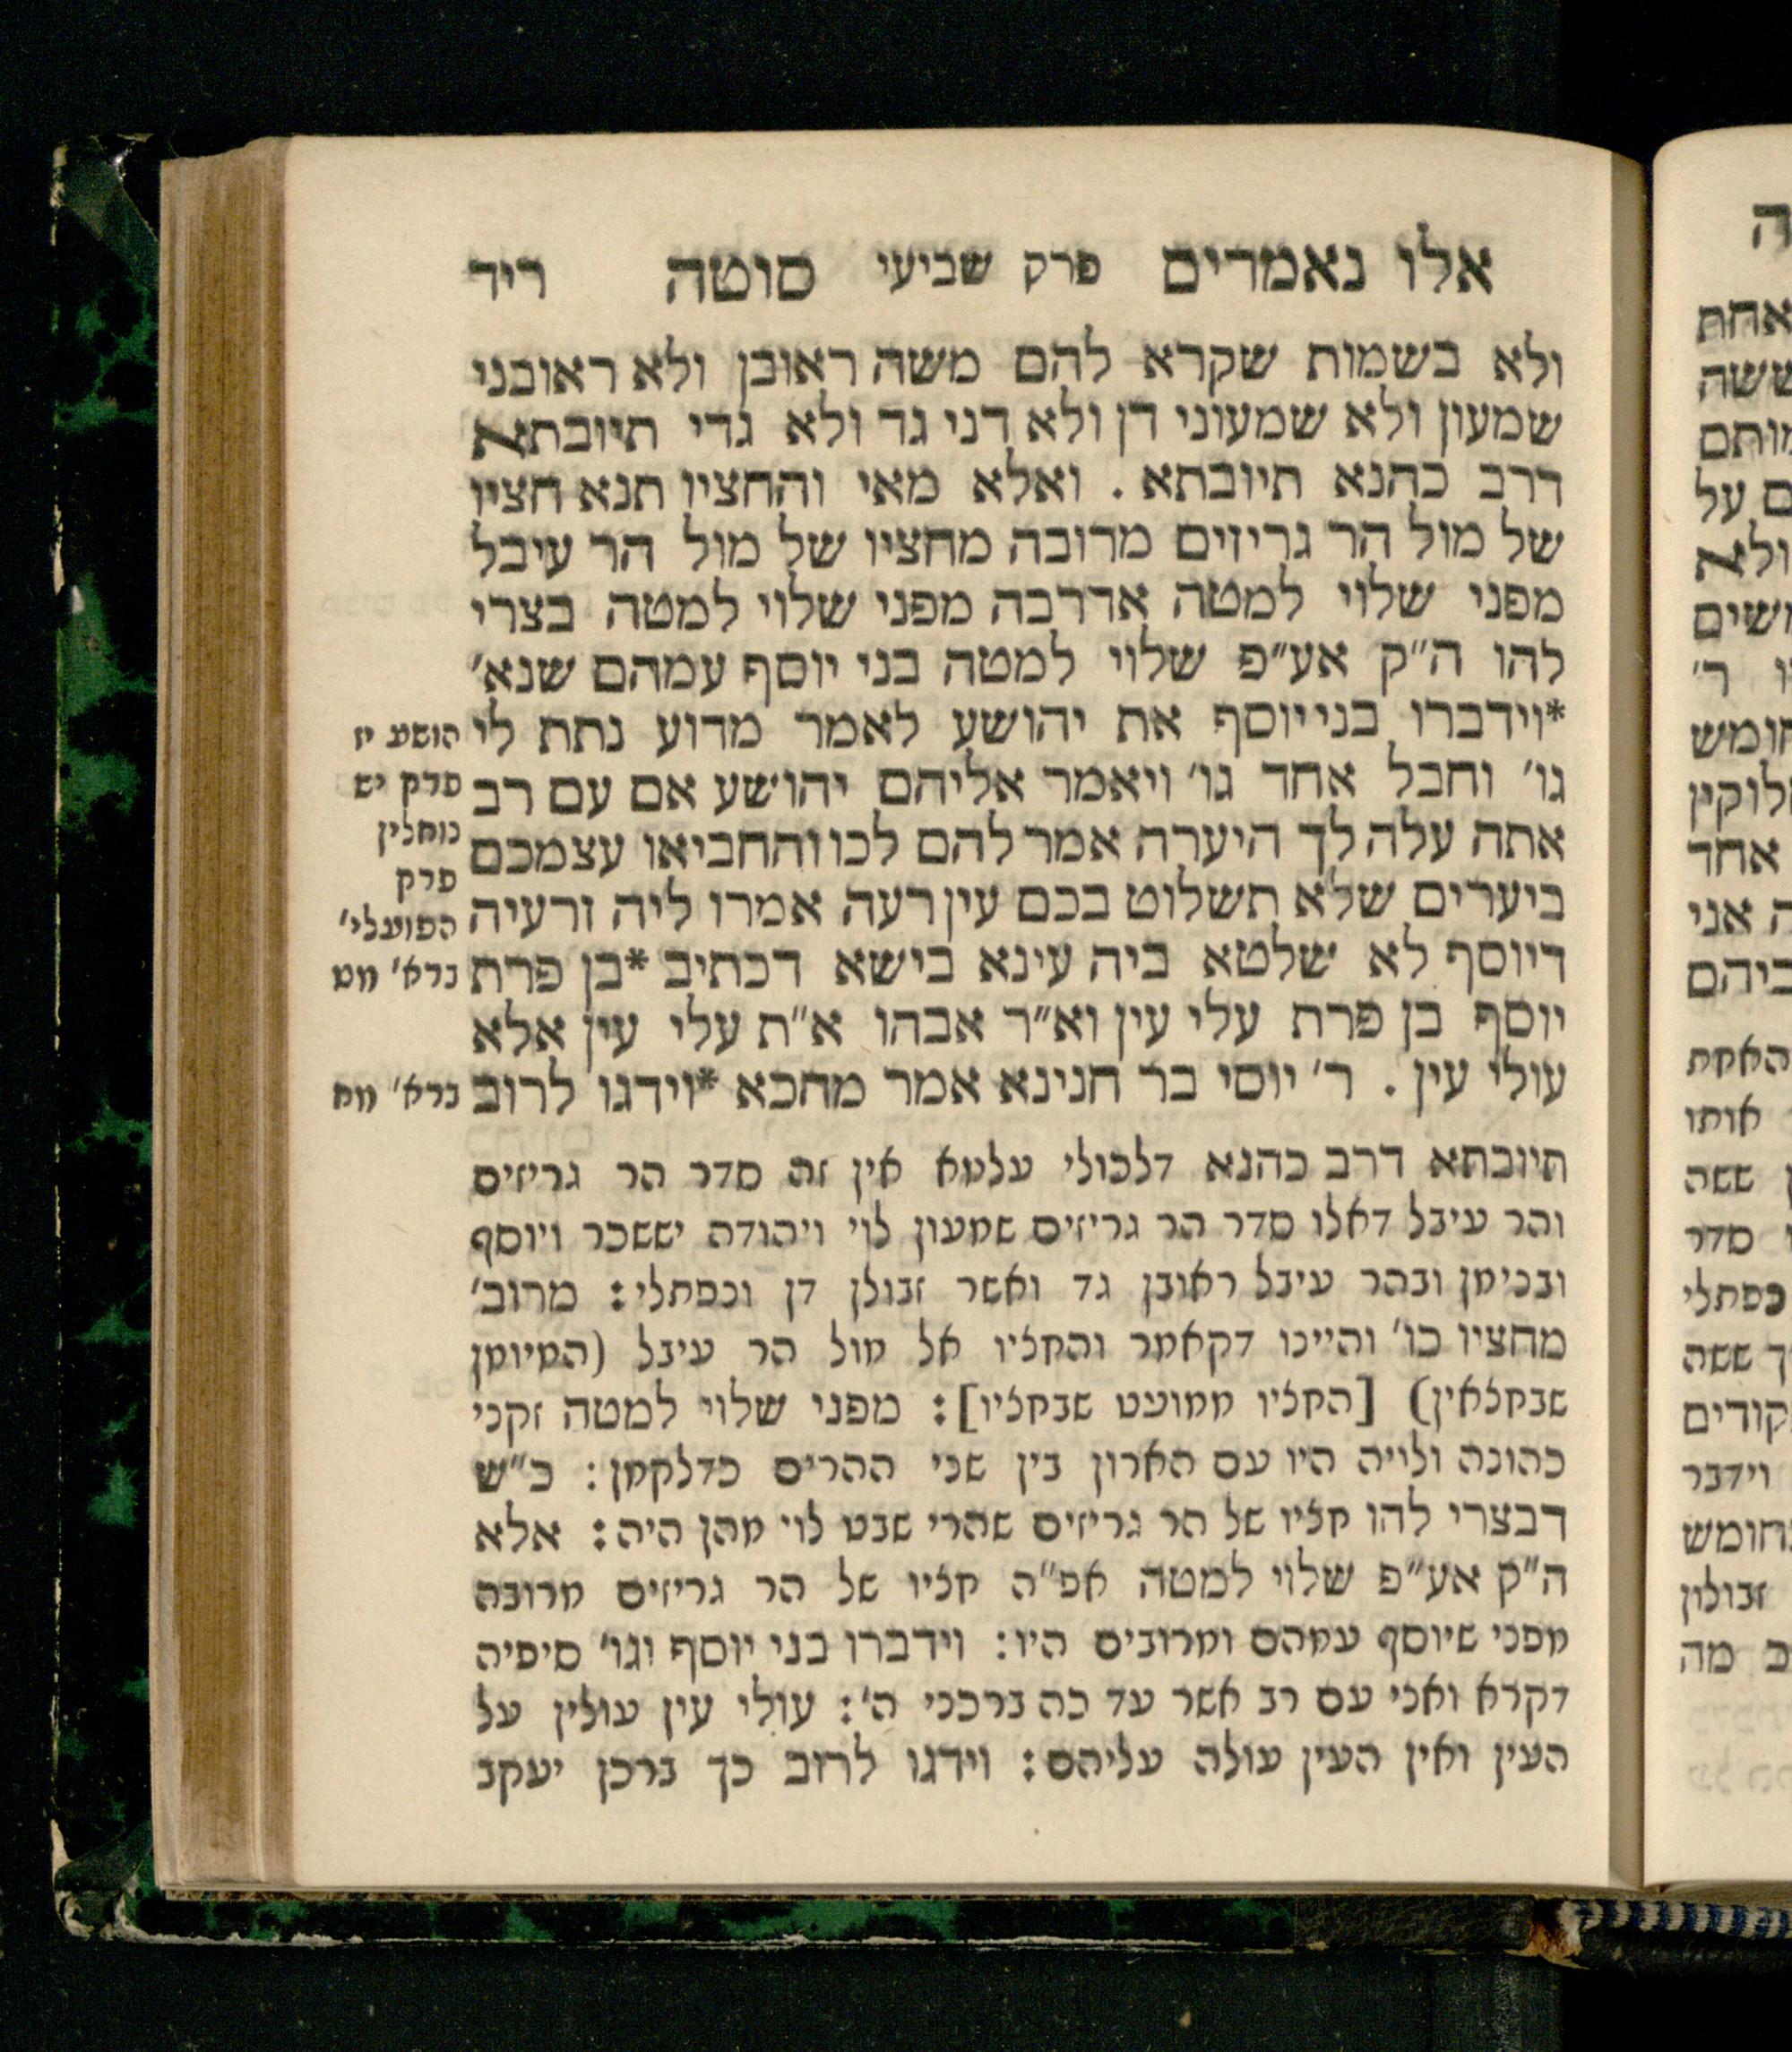 אלו נאמרים פרק שביעי סוטה ריד
ולא בשמות שקרא להם משה ראובן ולא ראובני
שמעון ולא שמעוני דן ולא דני גד ולא גדי תיובתא
דרב כהנא תיובתא. ואלא מאי והחציו תנא חציו
של מול הר גריזים מרובה מחציו של מול הר עיבל
מפני שלוי למטה אדרבה מפני שלוי למטה בצרי
להו ה"ק אע"פ שלוי למטה בני יוסף עמהם שנא'
*וידברו בני יוסף את יהושע לאמר מדוע נתת לי
גו' וחבל אחד גו' ויאמר אליהם יהושע אם עם רב
אתה עלה לך היערה אמר להם לכו והחביאו עצמכם
ביערים שלא תשלוט בכם עין רעה אמרו ליה זרעיה
דיוסף לא שלטא ביה עינא בישא דכתיב *בן פרת
יוסף בן פרת עלי עין וא"ר אבהו א"ת עלי עין אלא
עולי עין. ר' יוסי בר חנינא אמר מהכא *וידגו לרוב
הושע יז
פרק יש
נוחלין
פרק
הפועלי'
ברא' מט
ברא' מח
תיובתא דרב כהנא דלכולי עלמא אין זה סדר הר גריזים
והר עיבל דאלו סדר הר גריזים שמעון לוי ויהודה יששכר ויוסף
ובנימן ובהר עיבל ראובן גד ואשר זבולן דן ונפתלי: מרוב'
מחציו כו' והיינו דקאמר והחציו אל מול הר עיבל (המיומן
שבחצאין) [החציו ממועט שבחציו]: מפני שלוי למטה זקני
כהונה ולויה היו עם הארון בין שני ההרים כדלקמן: כ"ש
דבצרי להו חציו של הר גריזים שהרי שבט לוי מהן היה: אלא
ה"ק אע"פ שלוי למטה אפ"ה חציו של הר גריזים מרובה
מפני שיוסף עמהם ומרובים היו: וידברו בני יוסף וגו' סיפיה
דקרא ואני עם רב אשר עד כה ברכני ה': עולי עין עולין על
העין ואין העין עולה עליהם: וידגו לרוב כך ברכן יעקב
ה
אחת
ששה
מותם
ם על
ולא
ו ר'
חומש
אחד
ה אני
ביהם
אותו
ששה
סדר
נפתלי
ך ששה
קודים
וידבר
זבולון
ב מה